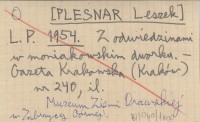 O [PLESNAR Leszek]
L.P. 1954. Z odwiedzinami
w moniakowskim dworku. -
Gazeta Krakowska (Kraków)
nr 240, il.
Muzeum Ziemi Orawskiej
w Zubrzycy Górnej.